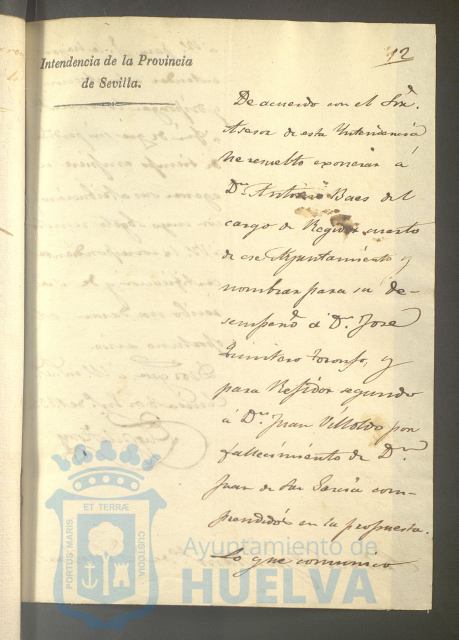 12
Intendencia de la Provincia
de Sevilla.
De acuerdo con el Sor.
Asesor de esta Intendencia
he resuelto exonerar á
Dn. Antonio Baes del
cargo de Regidor cuarto
de ese Ayuntamiento y
nombrar para su de-
sempeño á Dn. José
Quintero y
para Regidor segundo
á Dn. Juan Villoldo por
fallecimiento de Dn.
Juan de García com-
prendidos en la propuesta.
Lo que comunico
ET TERRÆ
PORTUS MARIS
CUSTODIA
Ayuntamiento de
HUELVA